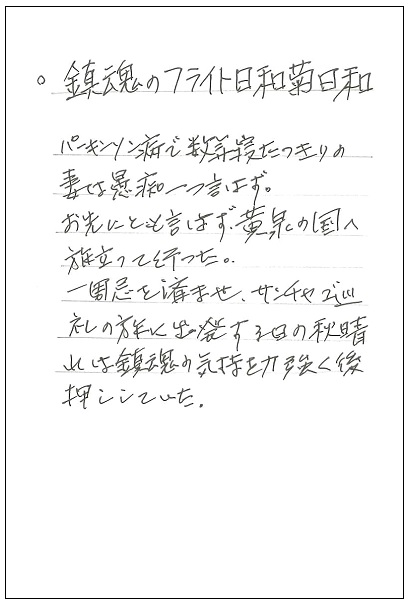 ○ 鎮魂のフライト日和菊日和
パーキンソン病で数年寝たっきりの
妻は愚痴一つ言はず。
お先にとも言はず、黄泉の国へ
旅立って行った。
一周忌を済ませ、サンチャゴ巡
礼の旅に出発する日の秋晴
れは鎮魂の気持を力強く後
押ししていた。